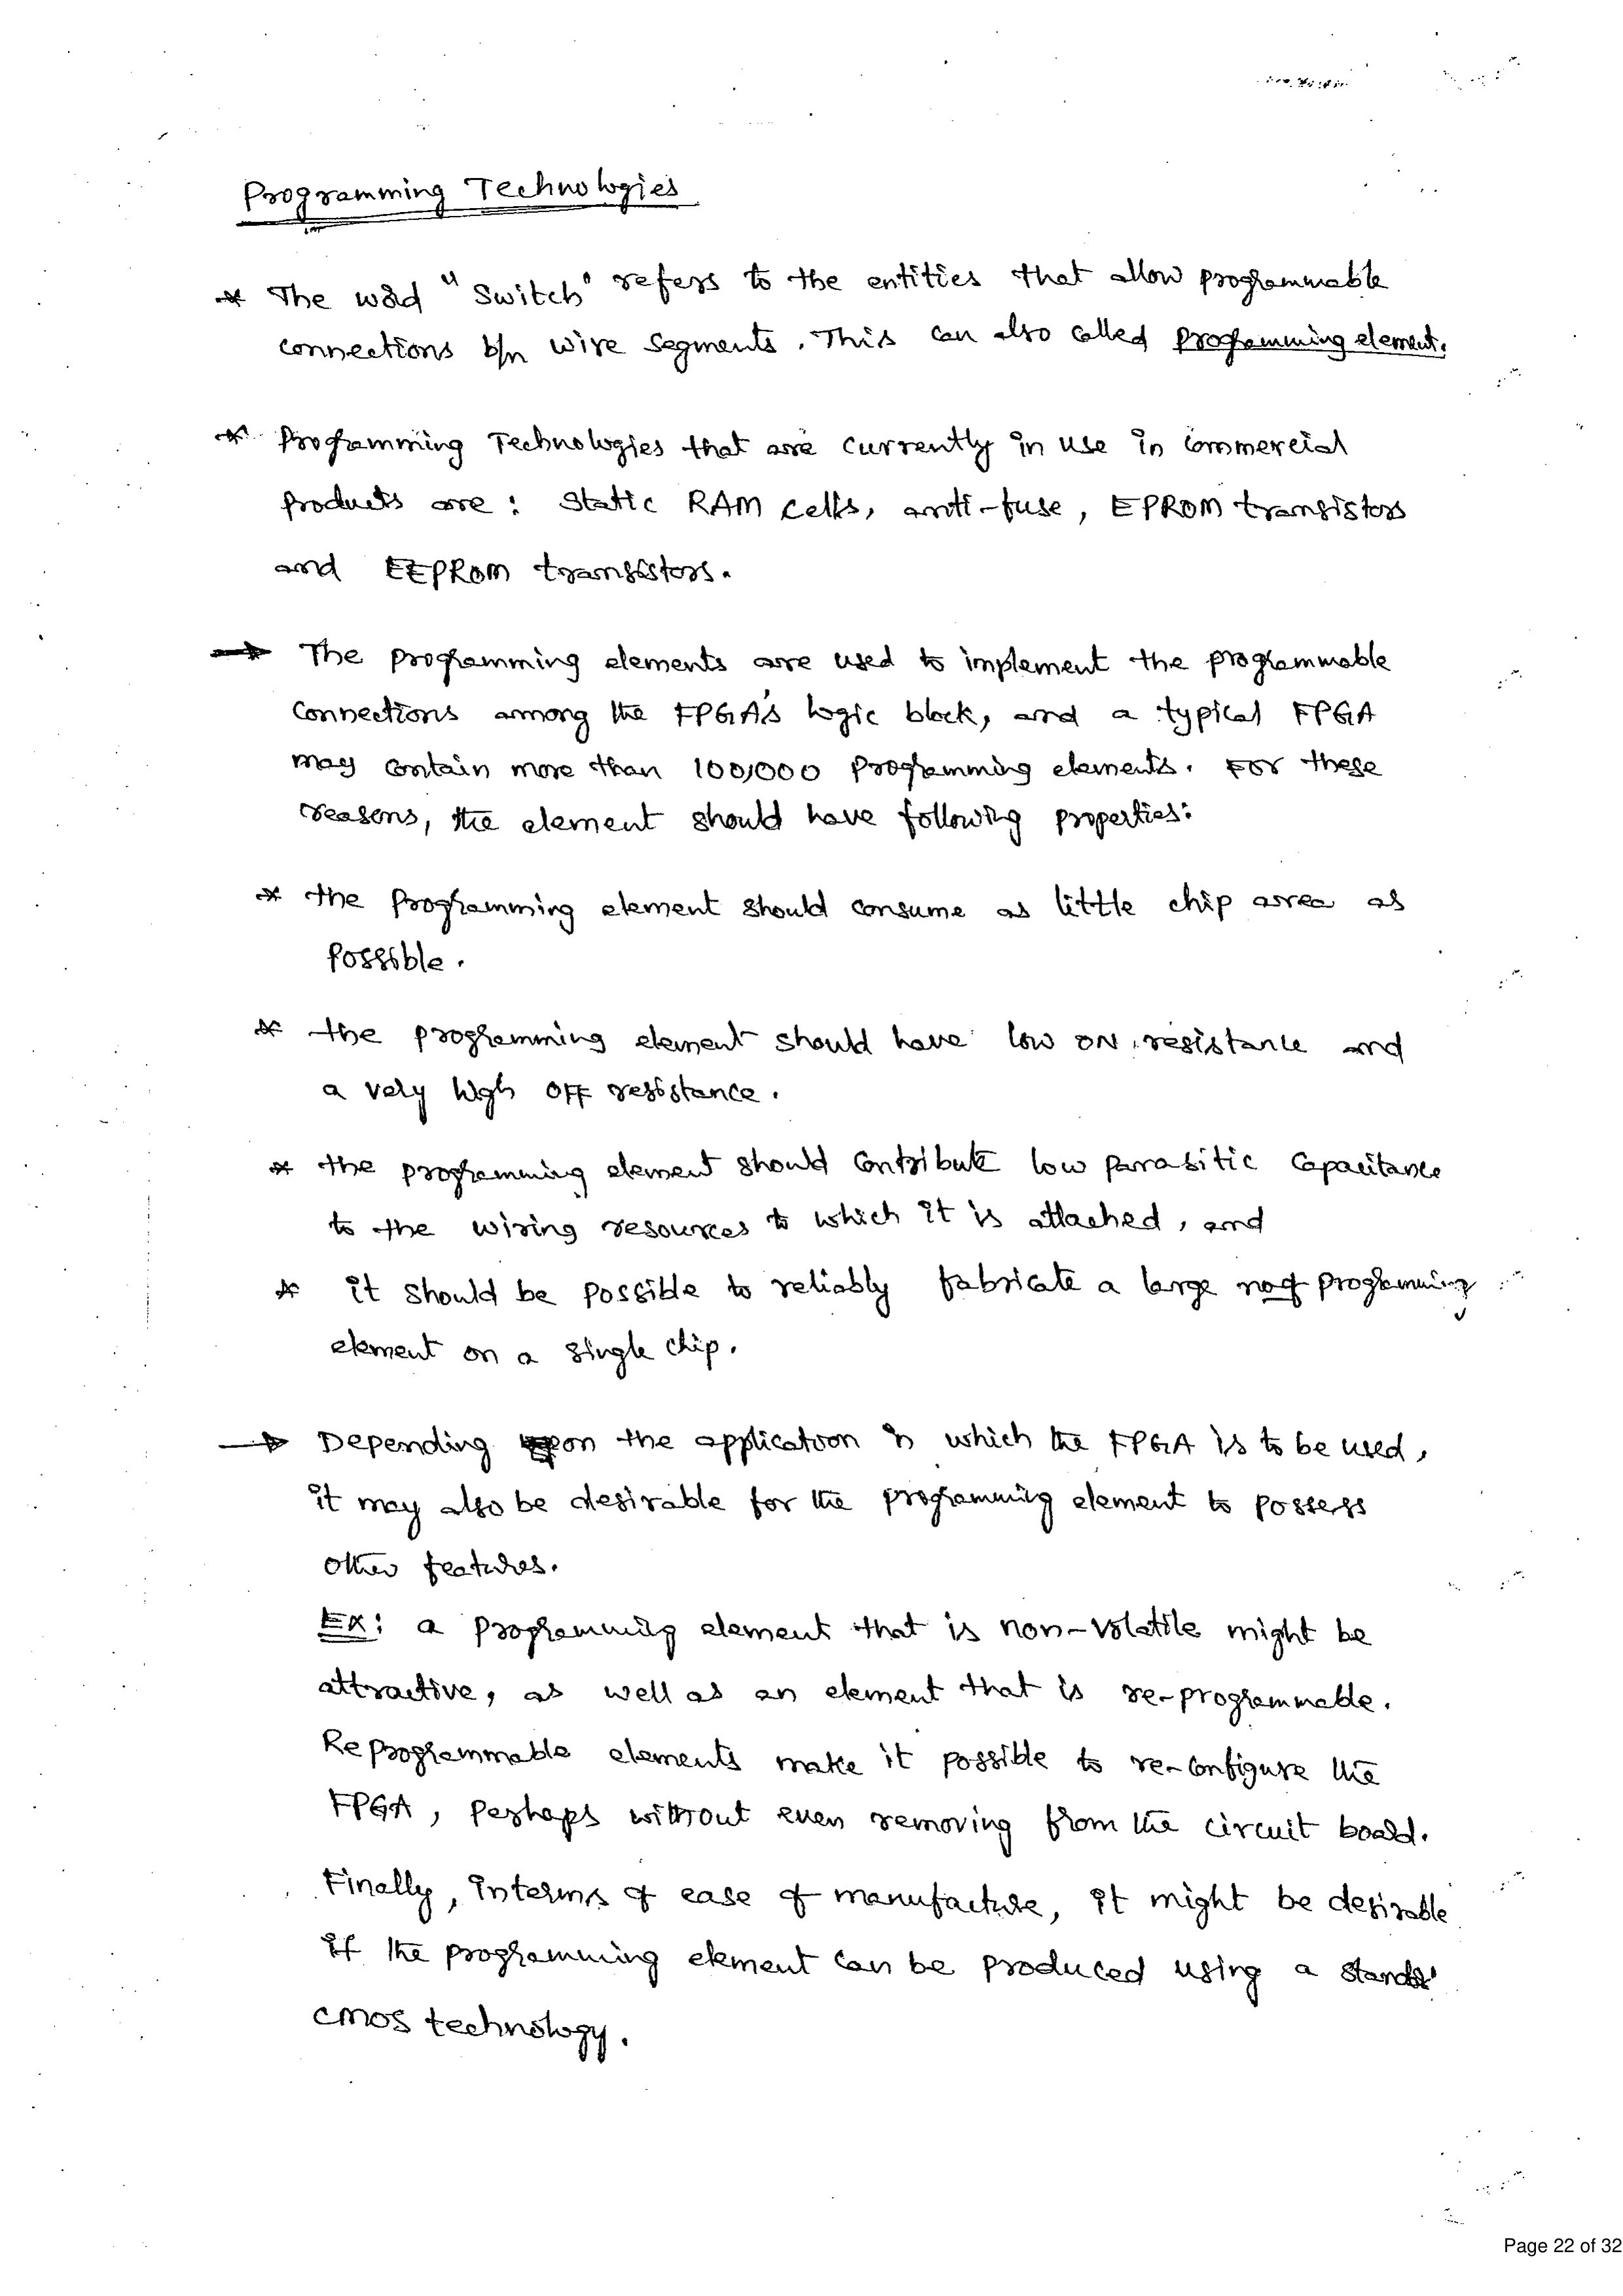 Programming Technologies
* The word "Switch" refers to the entities that allow programmable
connections b/n wire segments. This can also called programming element.
* Programming Technologies that are currently in use in commercial
products are : Static RAM cells, anti-fuse, EPROM transistors
and EEPROM transistors.
→ The programming elements are used to implement the programmable
connections among the FPGA's logic block, and a typical FPGA
may contain more than 100,000 programming elements. For these
reasons, the element should have following properties:
* the programming element should consume as little chip area as
possible.
* the programming element should have low ON resistance and
a very high OFF resistance.
* the programming element should contribute low parasitic capacitance
to the wiring resources to which it is attached, and
* it should be possible to reliably fabricate a large no of progamming
element on a single chip.
→ Depending upon the application in which the FPGA is to be used,
it may also be desirable for the programming element to possess
other features.
Ex: a programming element that is non-volatile might be
attractive, as well as an element that is re-programmable.
Reprogrammable elements make it possible to re-configure the
FPGA, perhaps without even removing from the circuit board.
Finally, interms of ease of manufacture, it might be desirable
if the programming element can be produced using a
CMOS technology.
Page 22 of 32